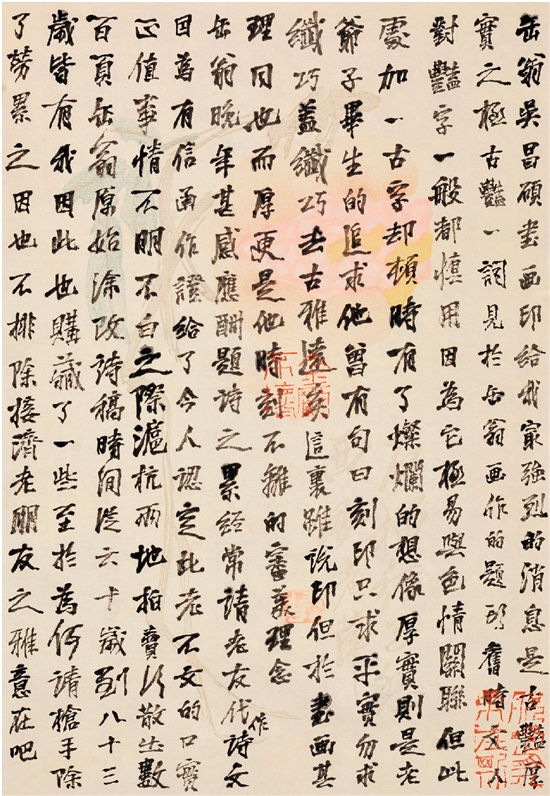 缶翁吳昌碩書画印給我最強烈的消息是古豔厚
實之極古豔一詞見於缶翁画作的題疏舊時文人
對豔字一般都慎用因為它極易與色情關聯但此
處加一古字却頓時有了燦爛的想像厚實則是老
爺子畢生的追求他曾有句曰刻印只求平實勿求
纖巧蓋纖巧去古雅遠矣這裏雖說印但於書画其
理同也而厚更是他時刻不離的審美理念
缶翁晚年甚感應酬題詩之累經常請老友代作詩文
因為有信函作證給了今人認定此老不文的口實
正值事情不明不白之際滬杭兩地拍賣行散出數
百頁缶翁原始涂改詩稿時间從六十歲到八十三
歲皆有我因此也購藏了一些至於為何請槍手除
了勞累之因也不排除接濟老朋友之雅意在吧